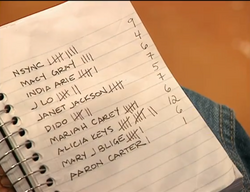 NSYNC 9
MACY GRAY 4
INDIA ARIE 6
J LO 7
JANET JACKSON 5
DIDO 7
MARIAH CAREY 6
ALICIA KEYS 12
MARY J BLIGE 6
AARON CARTER 1